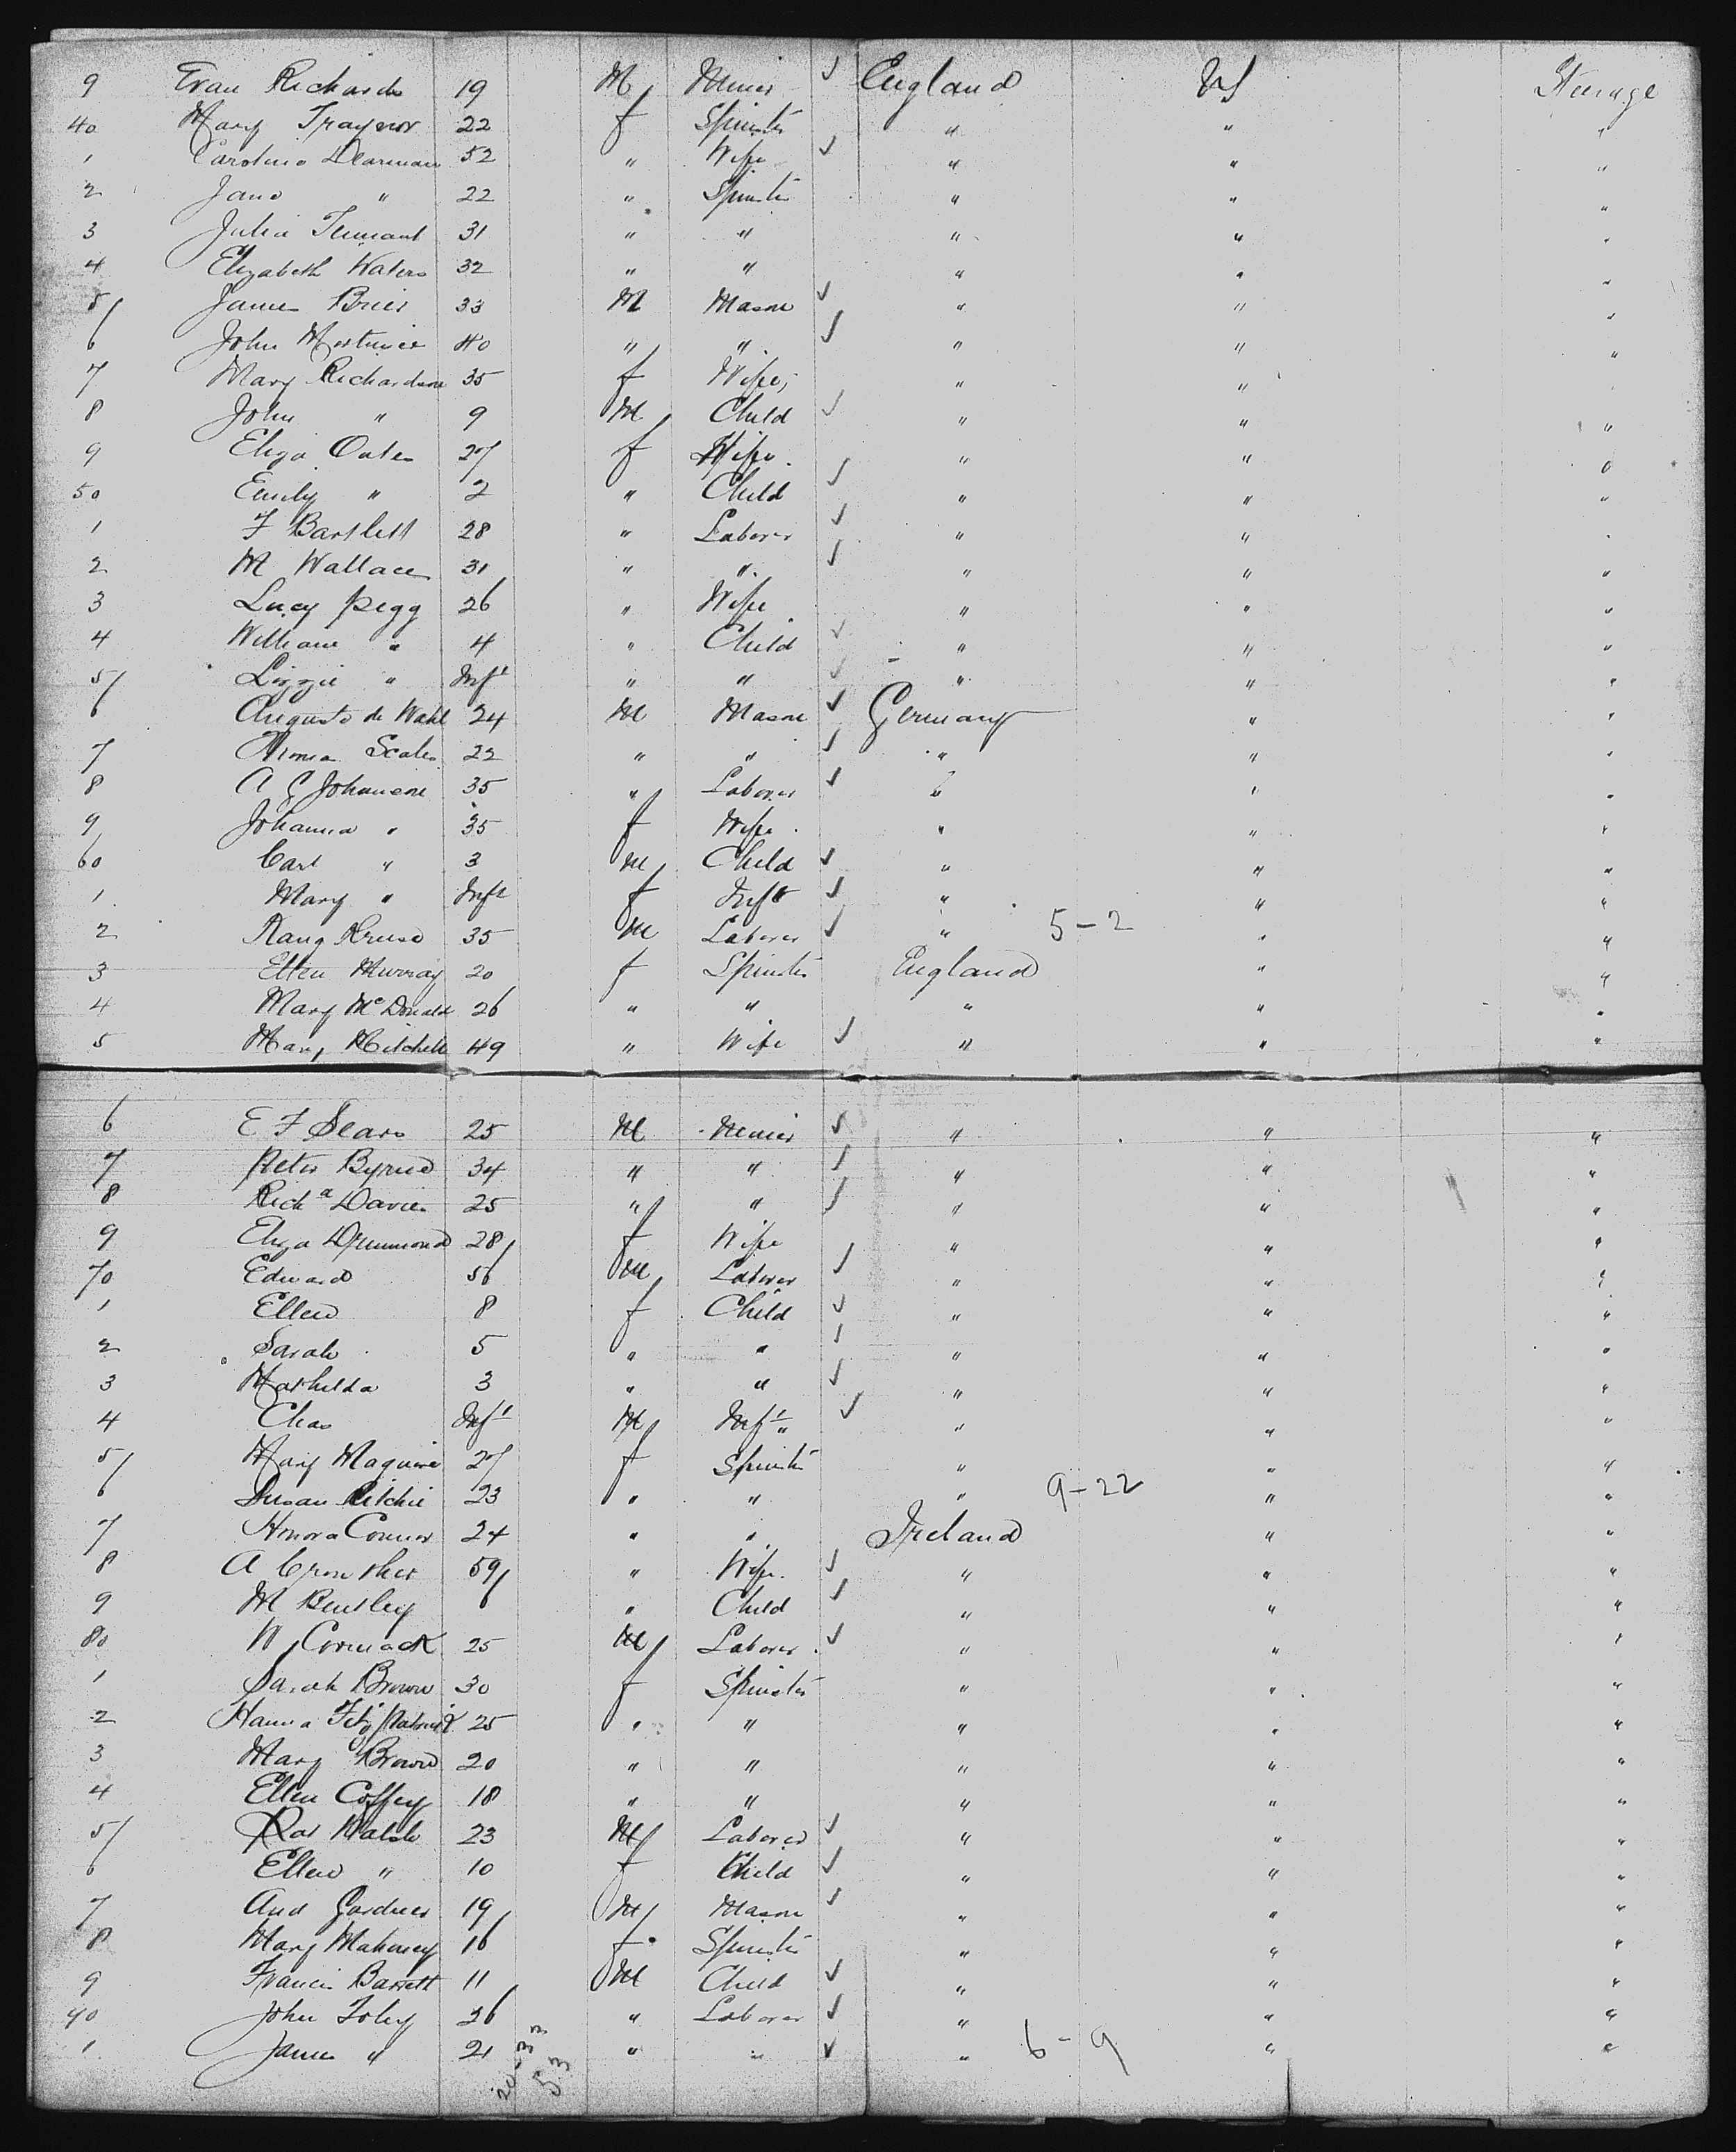 9 Evan Richards 19 M Miner √ England US Steerage
40 Mary Traynor 22 f Spinster " " "
1 Caroline Dearman 52 " Wife √ " " "
2 Jane " 22 " Spinster " " "
3 Julia Tennant 31 " " " " "
4 Elizabeth Waters 32 " " " " "
5 James Brier 33 M Mason √ " " "
6 John 40 " " √ " " "
7 Mary Richardson 35 f Wife " " "
8 John " 9 M Child √ " " "
9 Eliza Oates 27 f Wife " " "
50 Emily " 2 " Child √ " " "
1 F Bartlett 28 " Laborer √ " " "
2 M Wallace 31 " " √ " " "
3 Lucy Pegg 26 " Wife " " "
4 William " 4 " Child √ " " "
5 Lizzie " Inft " " √ " " "
6 Auguste de Wahl 24 M Mason √ Germany " "
7 Scales 22 " " √ " " "
8 A G Johansen 35 " Laborer √ " " "
9 Johanna " 35 f Wife " " "
60 Carl " 3 M Child √ " " "
1 Mary " Inft f Inft √ " " "
2 Kruse 35 M Laborer √ " 5-2 " "
3 Ellen Murray 20 f Spinster England " "
4 Mary McDonald 26 " " " " "
5 Mary Mitchell 49 " Wife √ " " "
6 E F Sears 25 M Miner √ " " "
7 Peter Byrne 34 " " √ " " "
8 Richd Davies 25 " " √ " " "
9 Eliza Drummond 28 f Wife " " "
70 Edward 56 M Laborer √ " " "
1 Ellen 8 f Child √ " " "
2 Sarah 5 " " √ " " "
3 Mathilda 3 " " √ " " "
4 Chas Inft M Inft " √ " " "
5 Mary Maguire 27 f Spinster " " "
6 Susan Ritchie 23 " " " 9-22 " "
7 Honora Connor 24 " " Ireland " "
8 A Crowther 59 " Wife √ " " "
9 M Bentley 6 " Child √ " " "
80 W Cormack 25 M Laborer √ " " "
1 Sarah Brown 30 f Spinster " " "
2 Hanna Fitzpatrick 25 " " " " "
3 Mary Brown 20 " " " " "
4 Ellen Coffey 18 " " " " "
5 Pat Walsh 23 M Laborer √ " " "
6 Ellen " 10 f Child √ " " "
7 And Gardner 19 M Mason √ " " "
8 Mary Mahoney 16 f Spinster " " "
9 Francis Barrett 11 M Child √ " " "
90 John Foley 26 " Laborer √ " " "
1 James " 21 " " √ " 6-9 " "
20-33
53